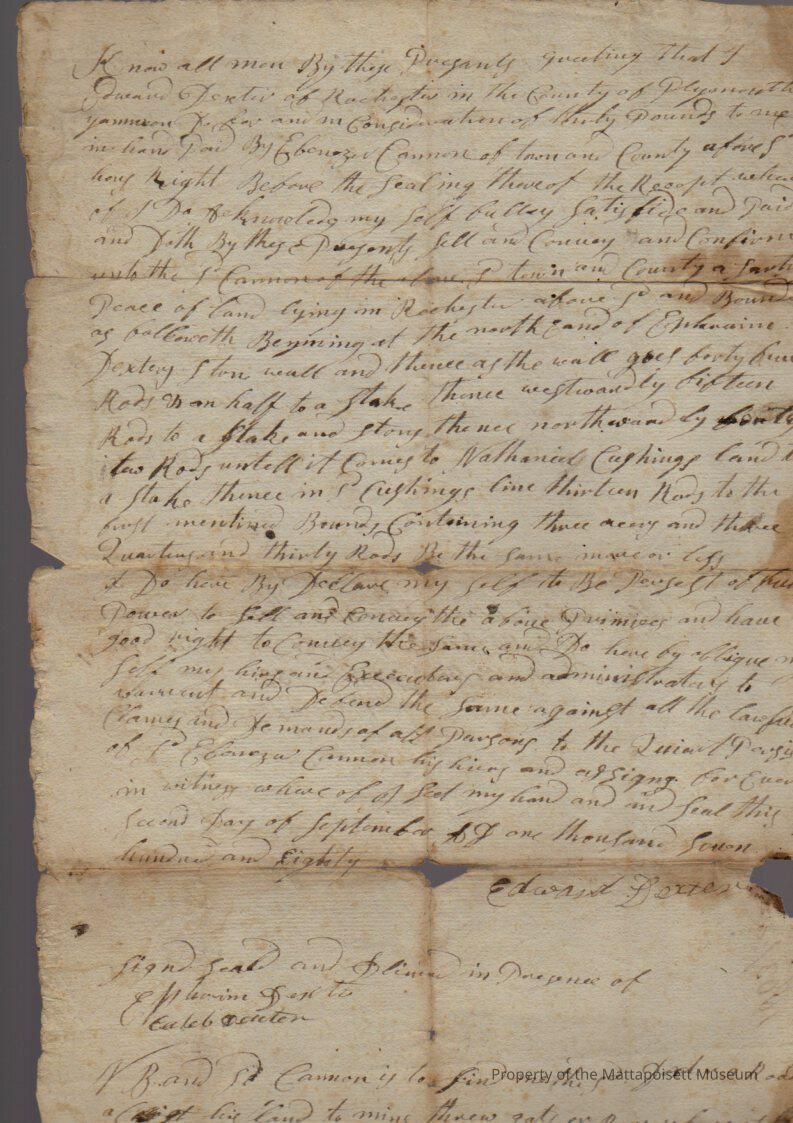 Know all men By these Presants greeting that I
Edward Dexter of Rochester in the County of Plymouth
yammon for and in Consideration of thirty Pounds to me
in hand Paid By Ebenezer Cannon of town and County afore Sd
Right Before the Sealing thereof the Recept where
of I Do Acknowledg my self fulley Satisfide and Paid
and Doth By these Presants Sell and Convey and Confirm
unto the Sd Cannon of the above Sd town and County a Sarten
Peace of land lying in Rochester above Sd and Bound
as followeth Begining at the north eand of Ephraim
Dexters Ston wall and thence as the wall goes forty four
Rods an half to a Stake thence westwardly fifteen
Rods to a Stake and Stons thence northwardly forty
two Rods untell it Comes to Nathaniel Cushings land to
a Stake thence in Sd Cushings line thirteen Rods to the
first mentined Bounds Containing three acers and three
Quarters and thirty Rods Be the same more or less
I Do here By Declare my self to Be Persest of full
Power to Sell and Convey the above Primises and have
good right to Convey the same and Do here by oblige my
Self my hiers and Executors and administrators to
warrent and Defend the Same against all the lawful
Clames and Demands of all Parsons to the Quiart
of Sd Ebenezer Cannon his hiers and assigns for Ever
in witness where of I Set my hand and and Seal this
Second Day of September AD one thousand Seven
hundred and Eighty
Edward Dexter
Signd Seald and Deliverd in Presence of
Ephraim Dexter
Caleb Dexter
N B and Sd Cannon is to
his land to mine threw
Property of the Mattapoisett Museum